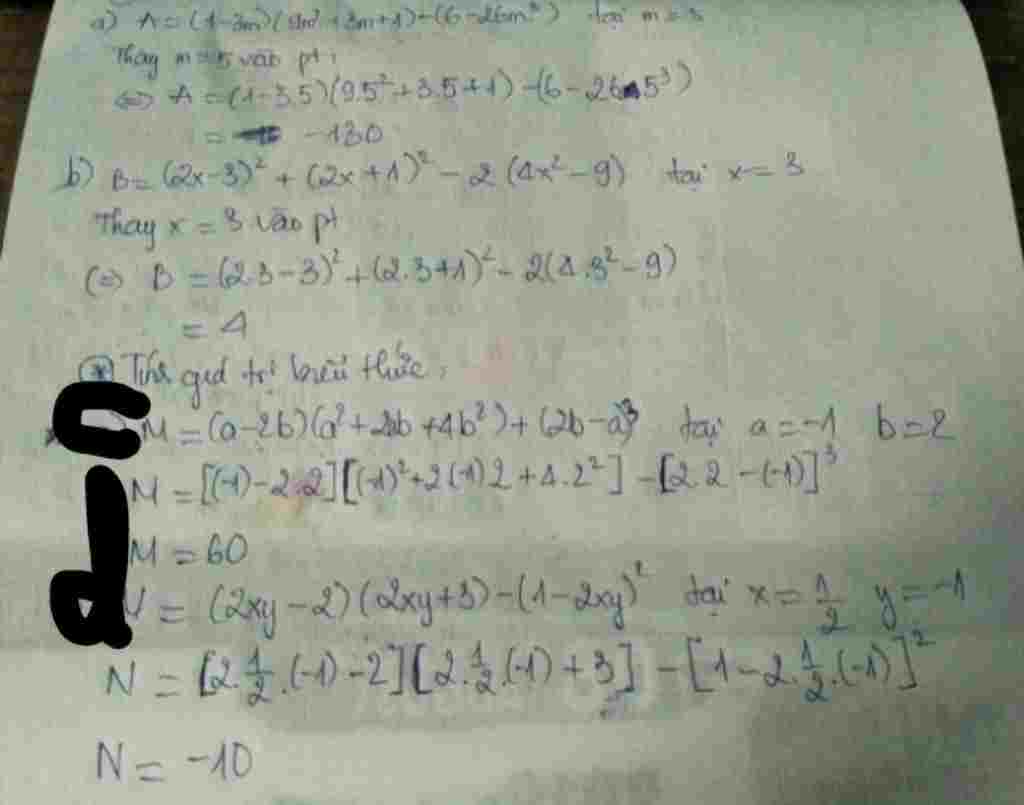 a) A = (1-3m)(9m² + 3m + 1) - (6 - 26m³) tại m = 5
Thay m = 5 vào pt:
<=> A = (1-3.5)(9.5² + 3.5 + 1) - (6 - 26.5³)
= -130
b) B = (2x-3)² + (2x+1)² - 2(4x² - 9) tại x = 3
Thay x = 3 vào pt
(=) B = (2.3-3)² + (2.3+1)² - 2(4.3² - 9)
= 4
* Tính giá trị biểu thức:
c M = (a-2b)(a² + 2ab + 4b²) + (2b-a)³ tại a = -1 b = 2
M = [(-1) - 2.2][(-1)² + 2(-1)2 + 4.2²] - [2.2 - (-1)]³
M = 60
d N = (2xy-2)(2xy+3) - (1-2xy)² tại x = 1/2 y = -1
N = [2.1/2.(-1) - 2][2.1/2.(-1) + 3] - [1 - 2.1/2.(-1)]²
N = -10